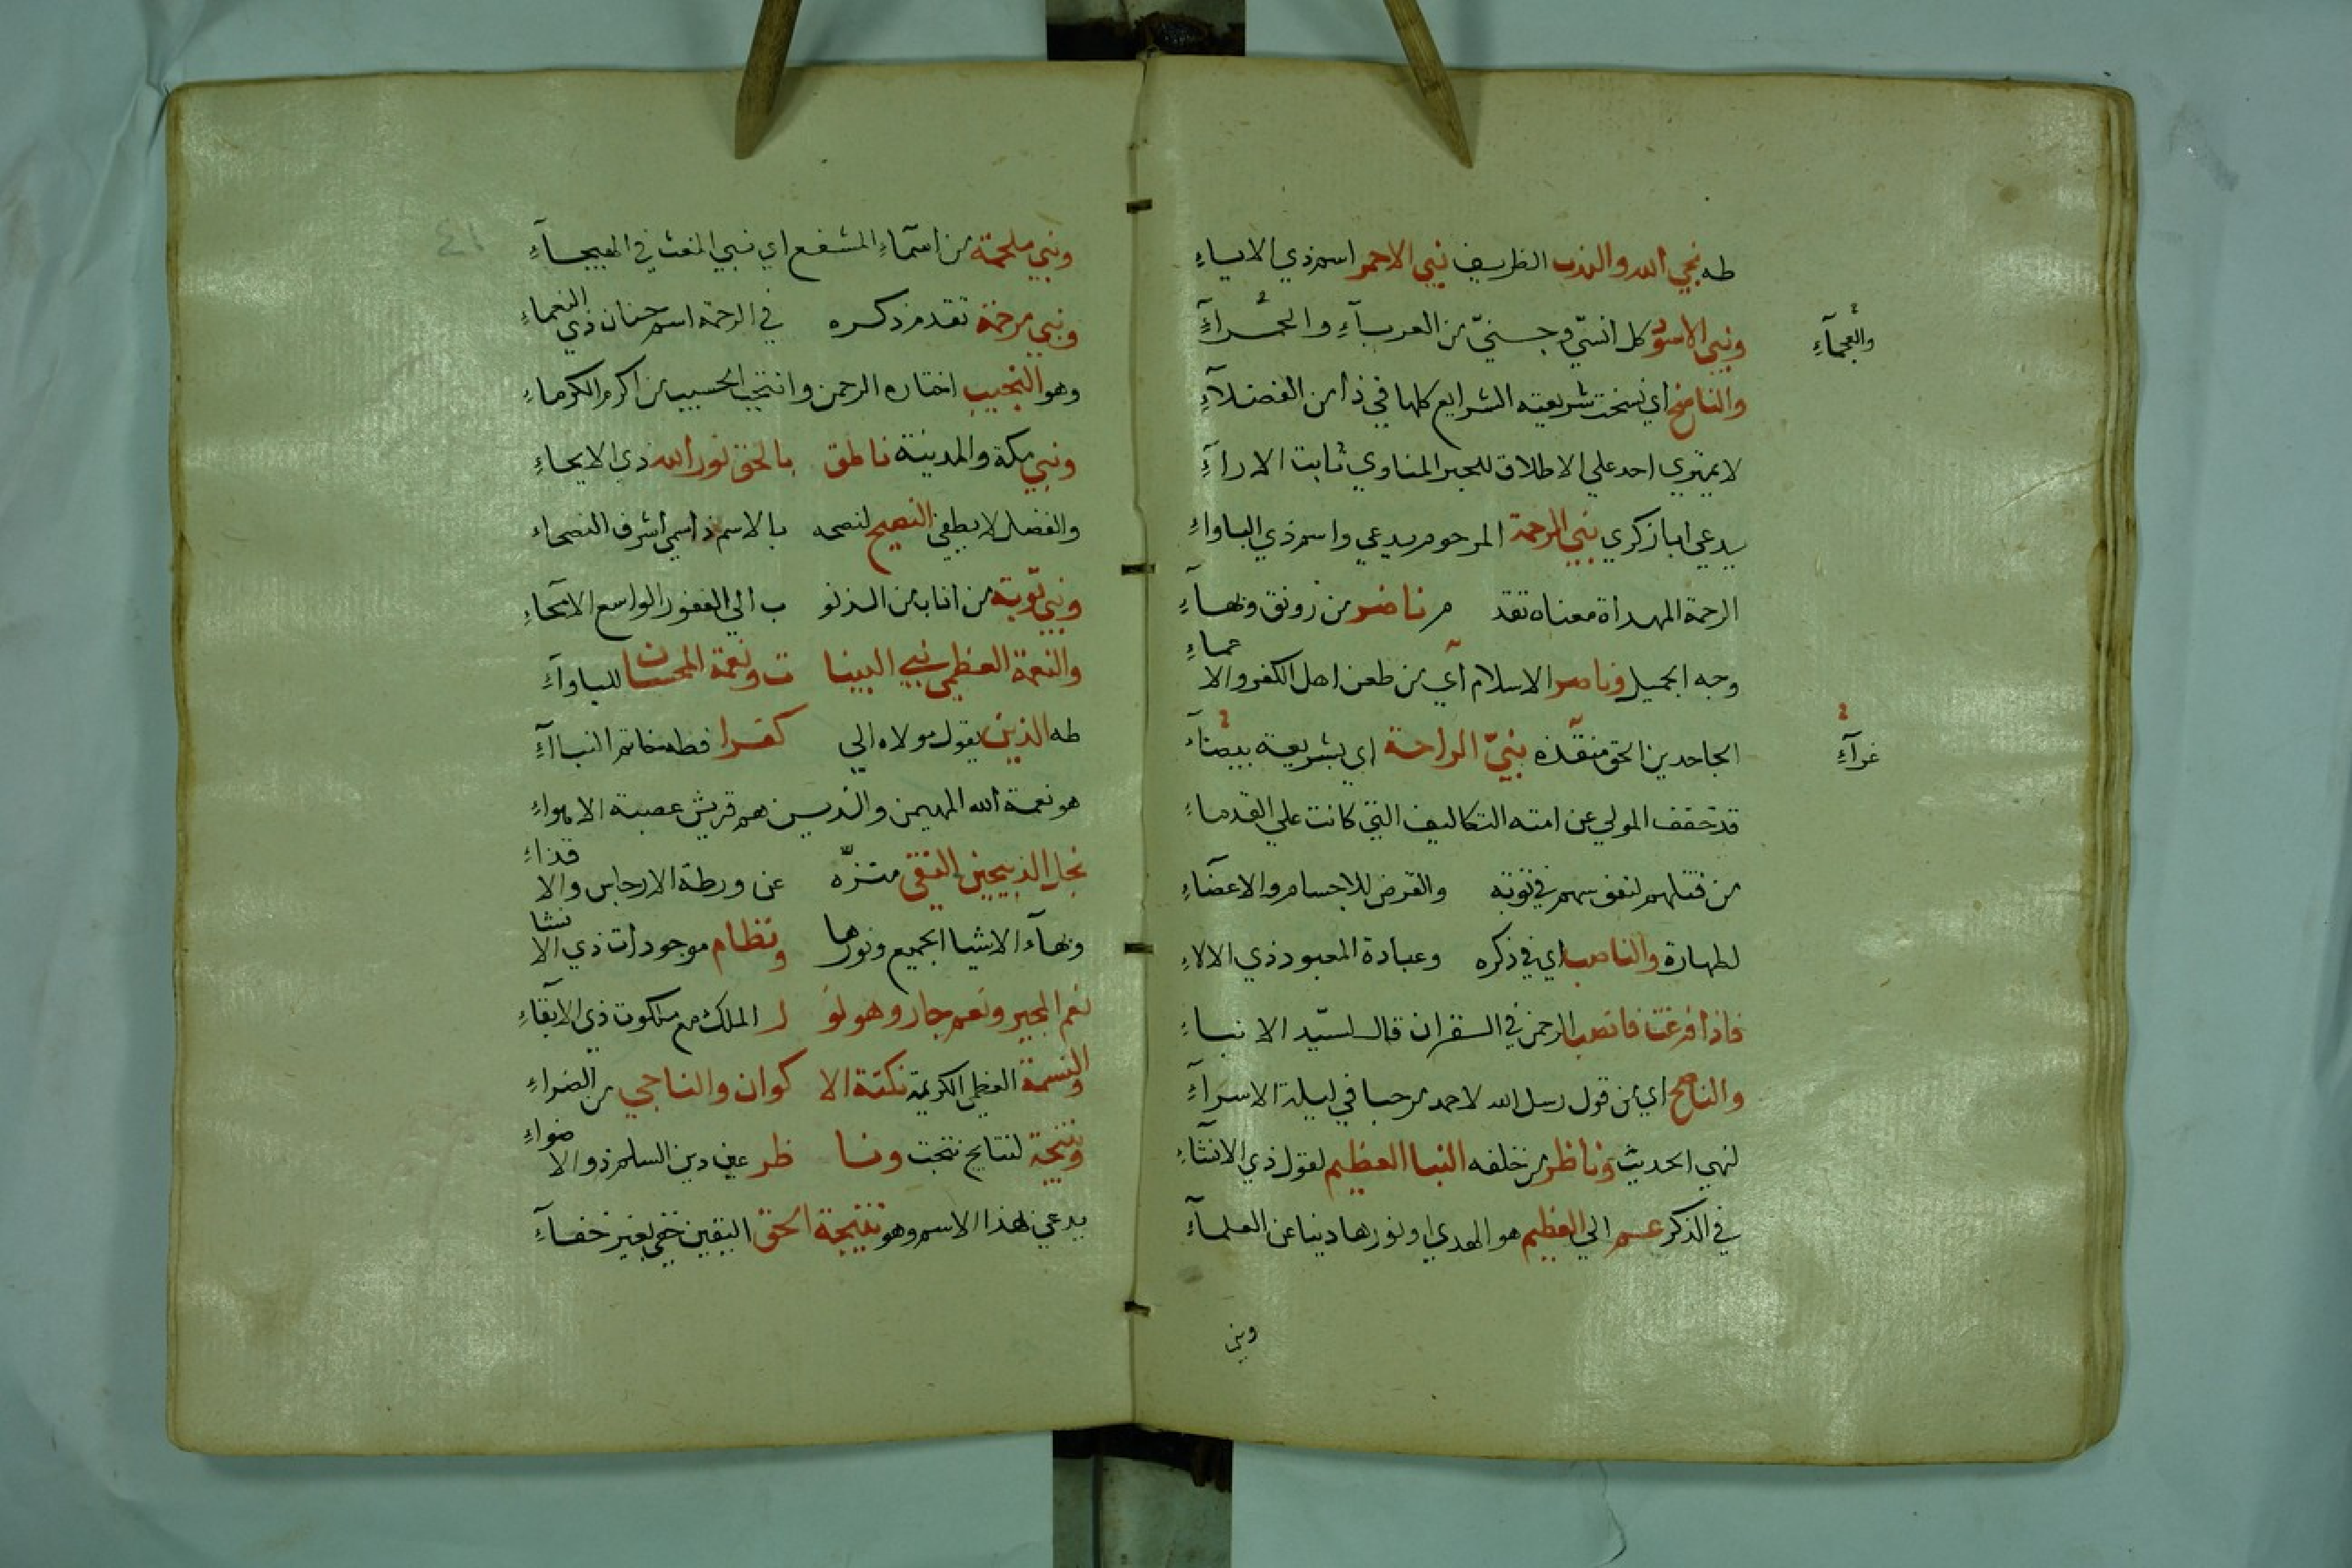 طه نجي الله والندب الظريف نبي الاحمر اسم ذي الايباء
ونبي الاسود كل انسيّ وجنيّ من العربآء والحمرآء
والعجمآء
والناسخ اي نسخت شريعته الشرايع كلها في ذا من الفضلآء
لا يمتري احد علي الاطلاق للحبر المناوي ثابت الارآء
يدعي ابا زكري نبي الرحمة المرحوم يدعي واسم ذي الباواء
الرحمة المهداة معناه تقدم ناضر من رونق وبهآء
وجه الجميل وناصر الاسلام اي من طعن اهل الكفر والاعماء
الجاحدين الحق منقذه نبيّ الراحة اي بشريعة بيضآء
غرآء
قد خفف المولي عن امته التكاليف التي كانت علي القدماء
من قتلهم لنفوسهم في توبة والقرض للاجسام والاعضآء
لطهارة والناصب اي في ذكره وعبادة المعبود ذي الالاء
فاذا فرغت فانصب الرحمن في القران قال لسيّد الانباء
والناصح اي من قول رسل الله لاحمد مرحبا في ليلة الاسرآء
لنهي الحديث وناظر من خلفه النبا العظيم لقول ذي الانشآء
في الذكر عم الي العظيم هو الهدي او نورها دينا عن العلمآء
ونبي
ونبي ملحمة من اسمآء المشفع اي نبي البعث في الهيجآء
ونبي مرحمة تقدم ذكره في الرحمة اسم حنان ذي النعماء
وهو النجيب اختاره الرحمن وانتجب الحسيب من اكرم الكرماء
ونبي مكة والمدينة ناطق بالحق نور الله ذي الايحاء
والفضل لا يطفي النصيح لنصحه بالاسم ذا سمي اشرف النصحاء
ونبي توبة من اناب من الذنوب الي الغفور الواسع الانحاء
والنعمة العظمي نبي البينات ونعمة المحسان للباوآء
طه الذين يقول مولاه الي كفرا فطه خاتم النبآء
هو نعمة الله المهيمن والذين هم قريش عصبة الاهواء
نجل الذبيحين النقي منزّه عن ورطة الارجاس والاقذاء
وبهآء الاشيا الجميع ونورها ونظام موجودات ذي الانشا
نعم المجير ونعم جار وهو نور الملك مع ملكوت ذي الابقاء
والنسمة العظمي الكريمة نكتة الاكوان والناجي من الضراء
ونتيجة لنتايج نتجت وناظر عين دين السلم ذو الاضواء
يدعي بهذا الاسم وهو نتيجة الحق اليقين خفي بغير خفآء